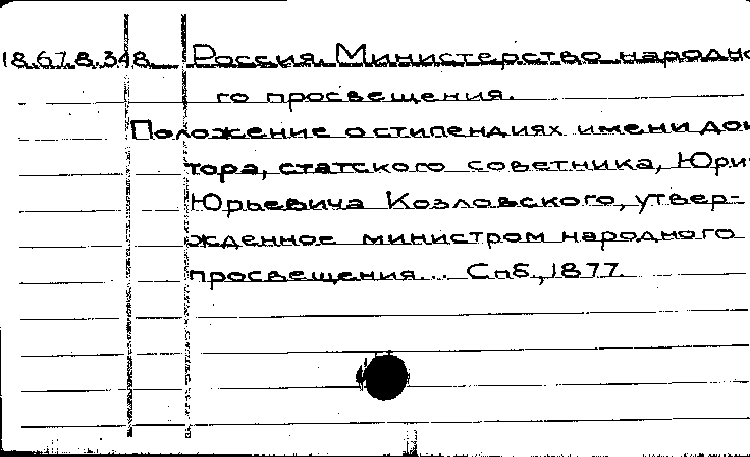 18.67.8.348 Россия. Министерство народно
го просвещения.
Положение о стипендиях имени док
тора, статского советника, Юри
Юрьевича Козловского, утвер-
жденное министром народного
просвещения... Спб., 1877.